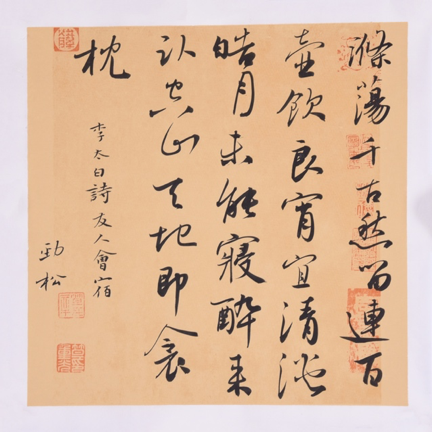 滌蕩千古愁留連百
壺飲良宵宜清談
皓月未能寢醉来
臥空山天地即衾
枕
李太白詩友人會宿
勁松